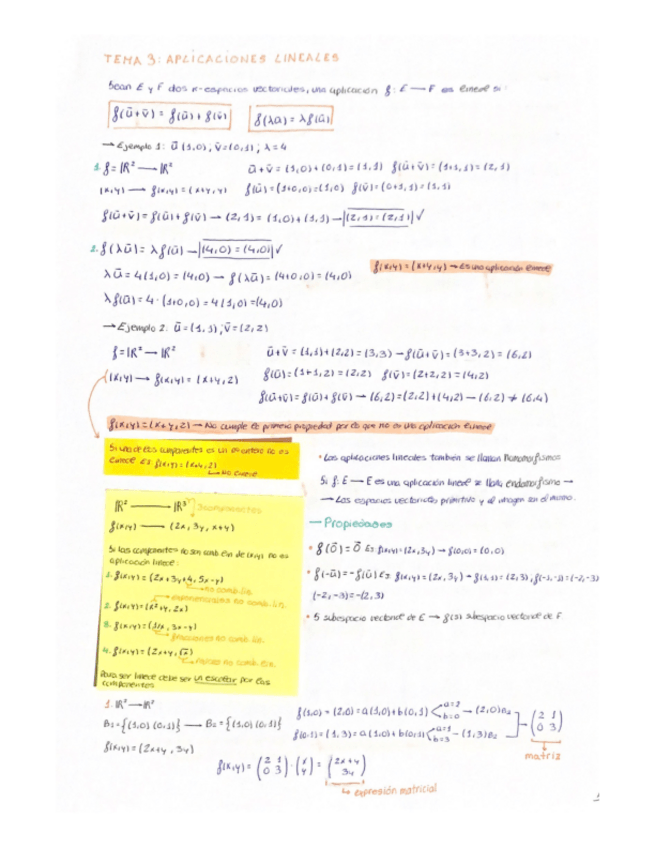 TEMA 3: APLICACIONES LINEALES
Sean E y F dos K-espacios vectoriales, una aplicación f: E → F es lineal si:
f(ū+v̄) = f(ū) + f(v̄)   f(λū) = λf(ū)
→ Ejemplo 1: ū(1,0), v̄=(0,1); λ=4
1. f = ℝ² → ℝ²   ū+v̄ = (1,0)+(0,1) = (1,1)   f(ū+v̄) = (1+1,1) = (2,1)
(x,y) → f(x,y) = (x+y,y)   f(ū) = (1+0,0) = (1,0)   f(v̄) = (0+1,1) = (1,1)
f(ū+v̄) = f(ū)+f(v̄) → (2,1) = (1,0)+(1,1) → (2,1) = (2,1) ✓
2. f(λū) = λf(ū) → (4,0) = (4,0) ✓
f(x,y) = (x+y,y) → Es una aplicación lineal
λū = 4(1,0) = (4,0) → f(λū) = (4+0,0) = (4,0)
λf(ū) = 4·(1+0,0) = 4(1,0) = (4,0)
→ Ejemplo 2: ū=(1,1); v̄=(2,2)
f = ℝ² → ℝ²   ū+v̄ = (1,1)+(2,2) = (3,3) → f(ū+v̄) = (3+3,2) = (6,2)
(x,y) → f(x,y) = (x+y,2)   f(ū) = (1+1,2) = (2,2)   f(v̄) = (2+2,2) = (4,2)
f(ū+v̄) = f(ū)+f(v̄) → (6,2) = (2,2)+(4,2) → (6,2) ≠ (6,4)
f(x,y) = (x+y,2) → No cumple la primera propiedad por lo que no es una aplicación lineal
Si una de las componentes es un nº entero no es
lineal Ej: f(x,y) = (x+y,2)
↳ No lineal
ℝ² → ℝ³ 3 componentes
f(x,y) → (2x, 3y, x+y)
Si las componentes no son comb lin de (x,y) no es
aplicación lineal:
1. f(x,y) = (2x+3y+4, 5x-y)
→ no comb. lin.
2. f(x,y) = (x²+y, 2x)
→ exponenciales no comb. lin.
3. f(x,y) = (1/x, 3x-y)
→ fracciones no comb. lin.
4. f(x,y) = (2x+y, √x)
→ raíces no comb. lin.
Para ser lineal debe ser un escalar por las
componentes
• Las aplicaciones lineales también se llaman homomorfismos
Si f: E → E es una aplicación lineal se llama endomorfismo →
→ Los espacios vectoriales primitivo y de imagen son el mismo.
— Propiedades
• f(0̄) = 0̄ Ej: f(x,y) = (2x,3y) → f(0,0) = (0,0)
• f(-ū) = -f(ū) Ej: f(x,y) = (2x,3y) → f(1,1) = (2,3), f(-1,-1) = (-2,-3)
(-2,-3) = -(2,3)
• S subespacio vectorial de E → f(S) subespacio vectorial de F
1. ℝ² → ℝ²
B₂ = {(1,0) (0,1)} → B₂ = {(1,0) (0,1)}
f(x,y) = (2x+y, 3y)
f(1,0) = (2,0) = a(1,0)+b(0,1) a=2 b=0 → (2,0)B₂
f(0,1) = (1,3) = a(1,0)+b(0,1) a=1 b=3 → (1,3)B₂
(2 1
0 3)
matriz
f(x,y) = (2 1 0 3) · (x y) = (2x+y 3y)
↳ expresión matricial
1